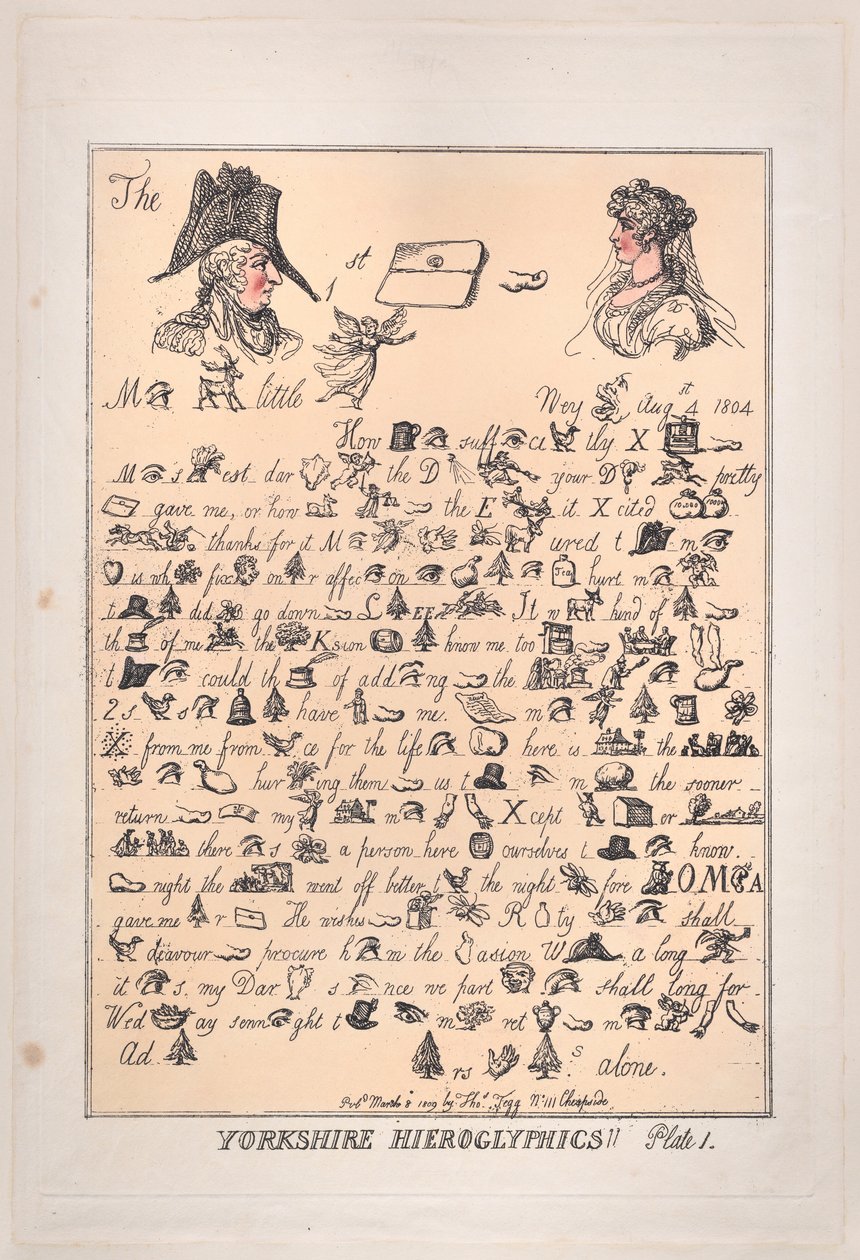 The
1st
M little
Wey Aug 4st 1804
How suff ci tly X
M s est dar the D your D pretty
gave me, or how the E it X cited 10.000 1000
thanks for it M ured t m
is wh fix on r affec on Tea hurt m
t did go down L EE It w kind of
th of me the K sion know me too
t could th of add ng the
2 s s have me. m
X from me from ce for the life here is the
hur ing them us t m the sooner
return my m X cept er
there s a person here ourselves t know.
night the went off better t the night fore OM A
gave me r He wishes R ty shall
d avour procure h m the asion W a long
it s. my Dar s nce we part shall long for
Wed ay senn ght t m ret m
Ad rs s alone.
Pubd March 8 1809 by Thos. Tegg No. 111 Cheapside.
YORKSHIRE HIEROGLYPHICS!! Plate 1.